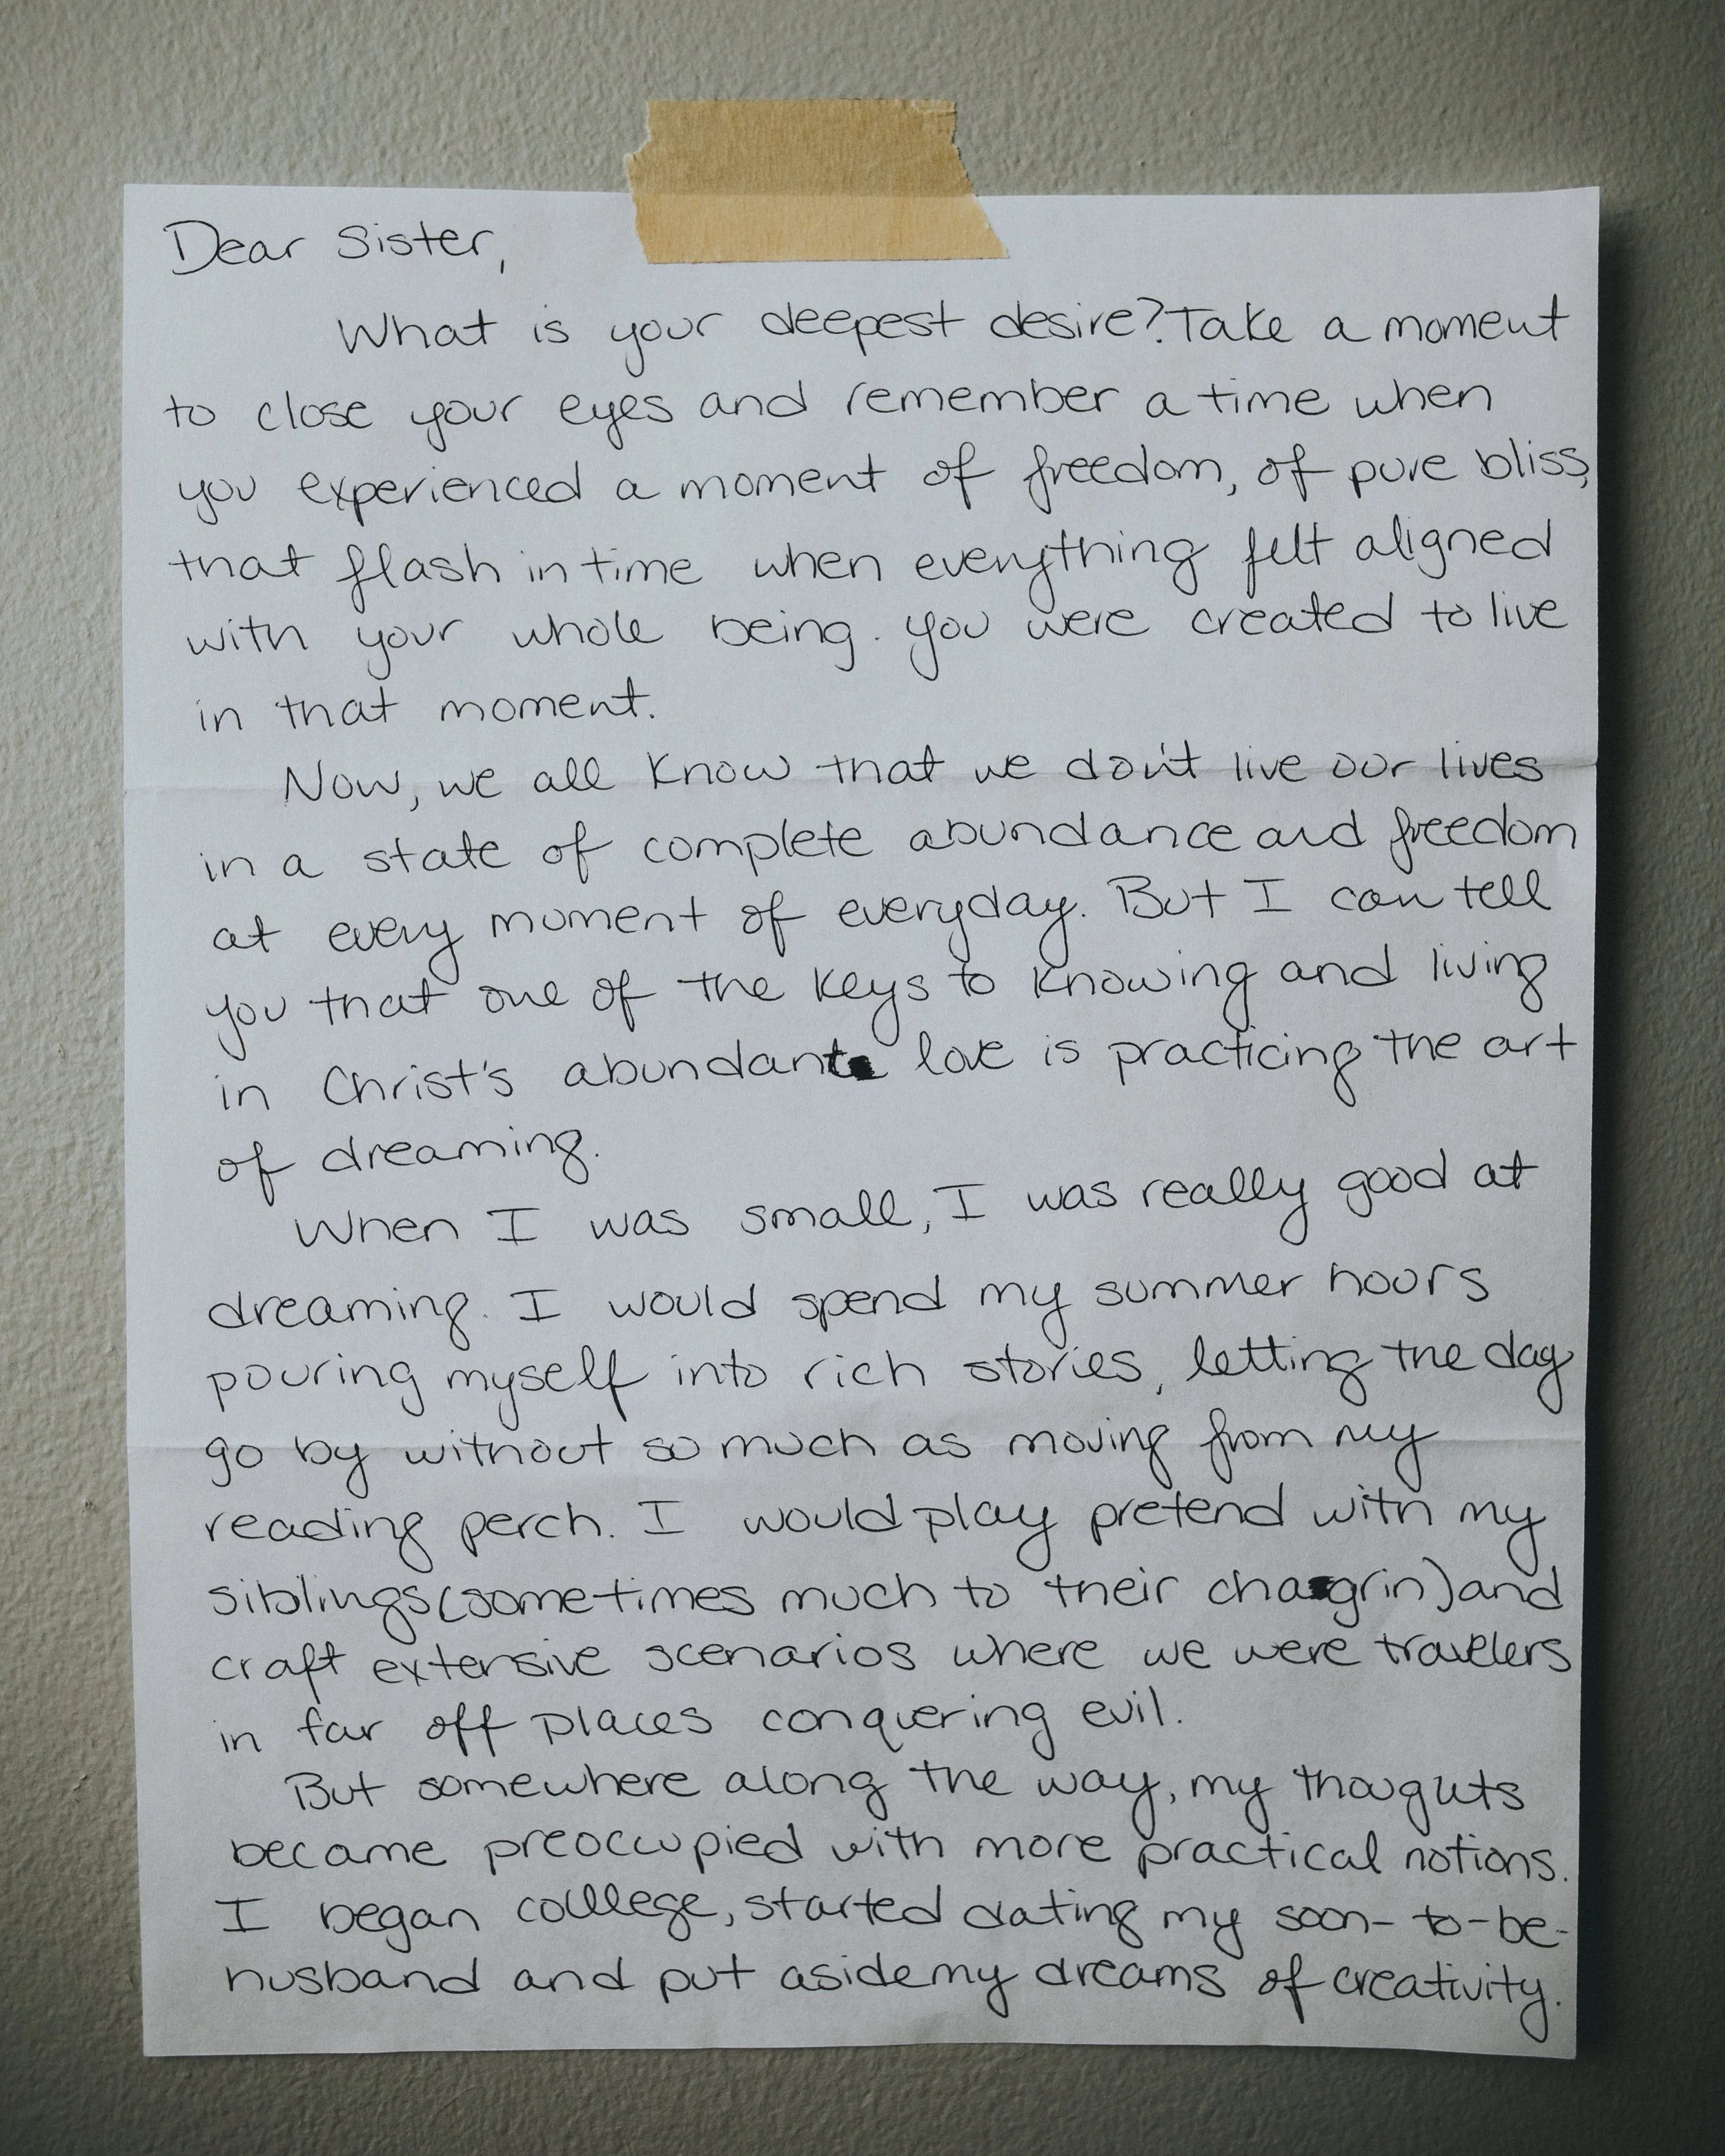 Dear Sister,
What is your deepest desire? Take a moment
to close your eyes and remember a time when
you experienced a moment of freedom, of pure bliss,
that flash in time when everything felt aligned
with your whole being. You were created to live
in that moment.
Now, we all know that we don't live our lives
in a state of complete abundance and freedom
at every moment of everyday. But I can tell
you that one of the keys to knowing and living
in Christ's abundant love is practicing the art
of dreaming.
When I was small, I was really good at
dreaming. I would spend my summer hours
pouring myself into rich stories, letting the day
go by without so much as moving from my
reading perch. I would play pretend with my
siblings (sometimes much to their chagrin) and
craft extensive scenarios where we were travelers
in far off places conquering evil.
But somewhere along the way, my thoughts
became preoccupied with more practical notions.
I began college, started dating my soon-to-be-
husband and put aside my dreams of creativity.